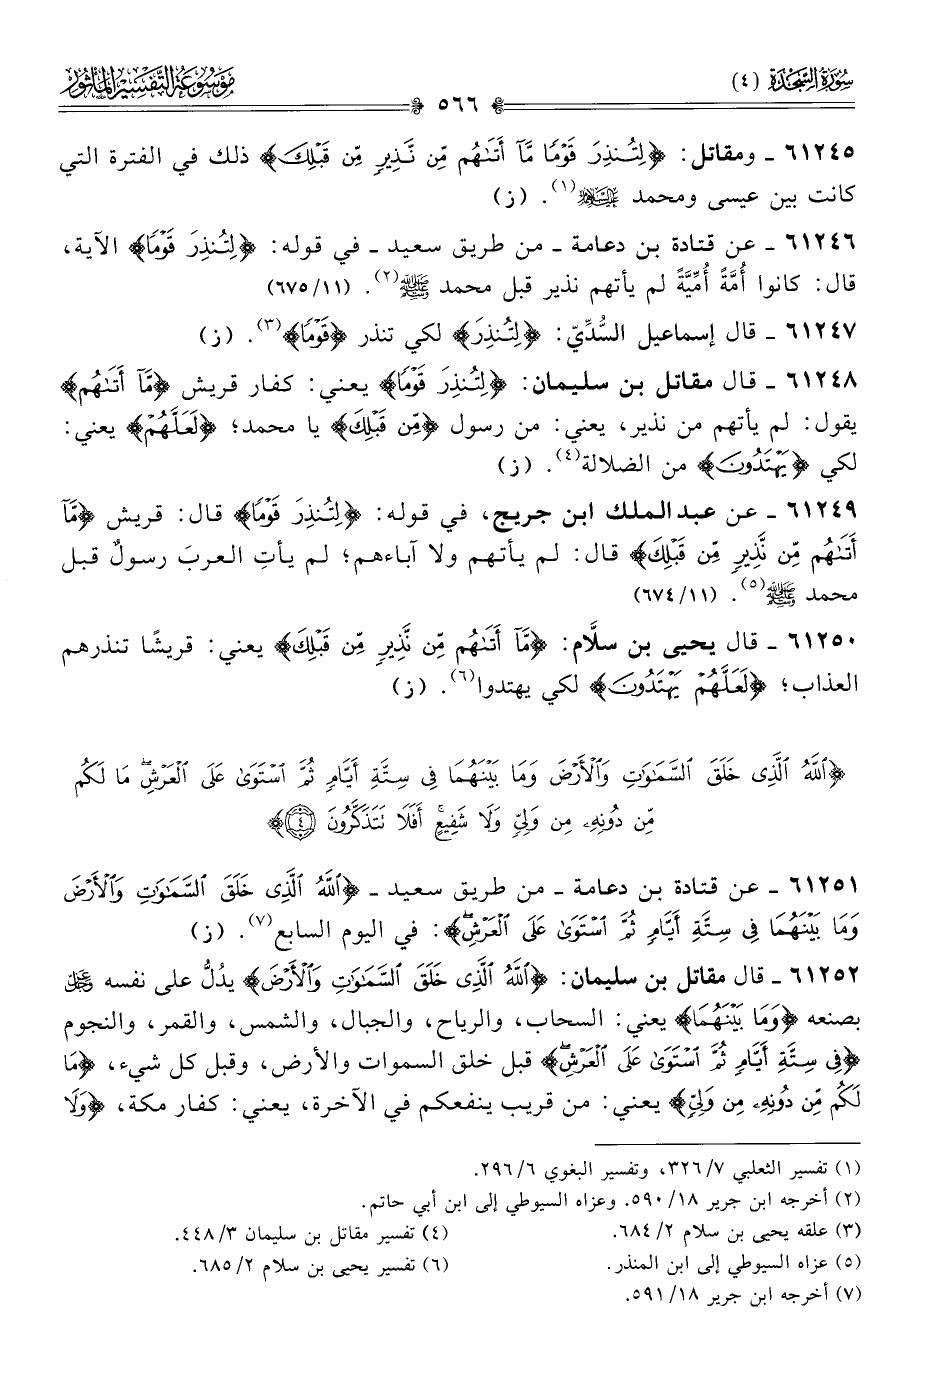 سورة السجدة (٤)
٥٦٦
موسوعة التفسير المأثور
٦١٢٤٥ ـ ومقاتل: ﴿لِتُنذِرَ قَوْمًا مَّآ أَتَىٰهُم مِّن نَّذِيرٍ مِّن قَبْلِكَ﴾ ذلك في الفترة التي
كانت بين عيسى ومحمد عليهما السلام(١). (ز)
٦١٢٤٦ ـ عن قتادة بن دعامة ـ من طريق سعيد ـ في قوله: ﴿لِتُنذِرَ قَوْمًا﴾ الآية،
قال: كانوا أُمَّةً أُمِّيَّةً لم يأتهم نذير قبل محمد ﷺ(٢). (٦٧٥/١١)
٦١٢٤٧ ـ قال إسماعيل السُّدِّيّ: ﴿لِتُنذِرَ﴾ لكي تنذر ﴿قَوْمًا﴾(٣). (ز)
٦١٢٤٨ ـ قال مقاتل بن سليمان: ﴿لِتُنذِرَ قَوْمًا﴾ يعني: كفار قريش ﴿مَّآ أَتَىٰهُم﴾
يقول: لم يأتهم من نذير، يعني: من رسول ﴿مِّن قَبْلِكَ﴾ يا محمد؛ ﴿لَعَلَّهُمْ﴾ يعني:
لكي ﴿يَهْتَدُونَ﴾ من الضلالة(٤). (ز)
٦١٢٤٩ ـ عن عبد الملك ابن جريج، في قوله: ﴿لِتُنذِرَ قَوْمًا﴾ قال: قريش ﴿مَّآ
أَتَىٰهُم مِّن نَّذِيرٍ مِّن قَبْلِكَ﴾ قال: لم يأتهم ولا آباءهم؛ لم يأتِ العربَ رسولٌ قبل
محمد ﷺ(٥). (٦٧٤/١١)
٦١٢٥٠ ـ قال يحيى بن سلَّام: ﴿مَّآ أَتَىٰهُم مِّن نَّذِيرٍ مِّن قَبْلِكَ﴾ يعني: قريشًا تنذرهم
العذاب؛ ﴿لَعَلَّهُمْ يَهْتَدُونَ﴾ لكي يهتدوا(٦). (ز)
﴿ٱللَّهُ ٱلَّذِى خَلَقَ ٱلسَّمَٰوَٰتِ وَٱلْأَرْضَ وَمَا بَيْنَهُمَا فِى سِتَّةِ أَيَّامٍ ثُمَّ ٱسْتَوَىٰ عَلَى ٱلْعَرْشِۖ مَا لَكُم
مِّن دُونِهِۦ مِن وَلِىٍّ وَلَا شَفِيعٍۚ أَفَلَا تَتَذَكَّرُونَ ٤﴾
٦١٢٥١ ـ عن قتادة بن دعامة ـ من طريق سعيد ـ ﴿ٱللَّهُ ٱلَّذِى خَلَقَ ٱلسَّمَٰوَٰتِ وَٱلْأَرْضَ
وَمَا بَيْنَهُمَا فِى سِتَّةِ أَيَّامٍ ثُمَّ ٱسْتَوَىٰ عَلَى ٱلْعَرْشِۖ﴾: في اليوم السابع(٧). (ز)
٦١٢٥٢ ـ قال مقاتل بن سليمان: ﴿ٱللَّهُ ٱلَّذِى خَلَقَ ٱلسَّمَٰوَٰتِ وَٱلْأَرْضَ﴾ يدُلُّ على نفسه ﷻ
بصنعه ﴿وَمَا بَيْنَهُمَا﴾ يعني: السحاب، والرياح، والجبال، والشمس، والقمر، والنجوم
﴿فِى سِتَّةِ أَيَّامٍ ثُمَّ ٱسْتَوَىٰ عَلَى ٱلْعَرْشِۖ﴾ قبل خلق السموات والأرض، وقبل كل شيء، ﴿مَا
لَكُم مِّن دُونِهِۦ مِن وَلِىٍّ﴾ يعني: من قريب ينفعكم في الآخرة، يعني: كفار مكة، ﴿وَلَا
(١) تفسير الثعلبي ٣٢٦/٧، وتفسير البغوي ٢٩٦/٦.
(٢) أخرجه ابن جرير ٥٩٠/١٨. وعزاه السيوطي إلى ابن أبي حاتم.
(٣) علقه يحيى بن سلام ٦٨٤/٢.
(٤) تفسير مقاتل بن سليمان ٤٤٨/٣.
(٥) عزاه السيوطي إلى ابن المنذر.
(٦) تفسير يحيى بن سلام ٦٨٥/٢.
(٧) أخرجه ابن جرير ٥٩١/١٨.